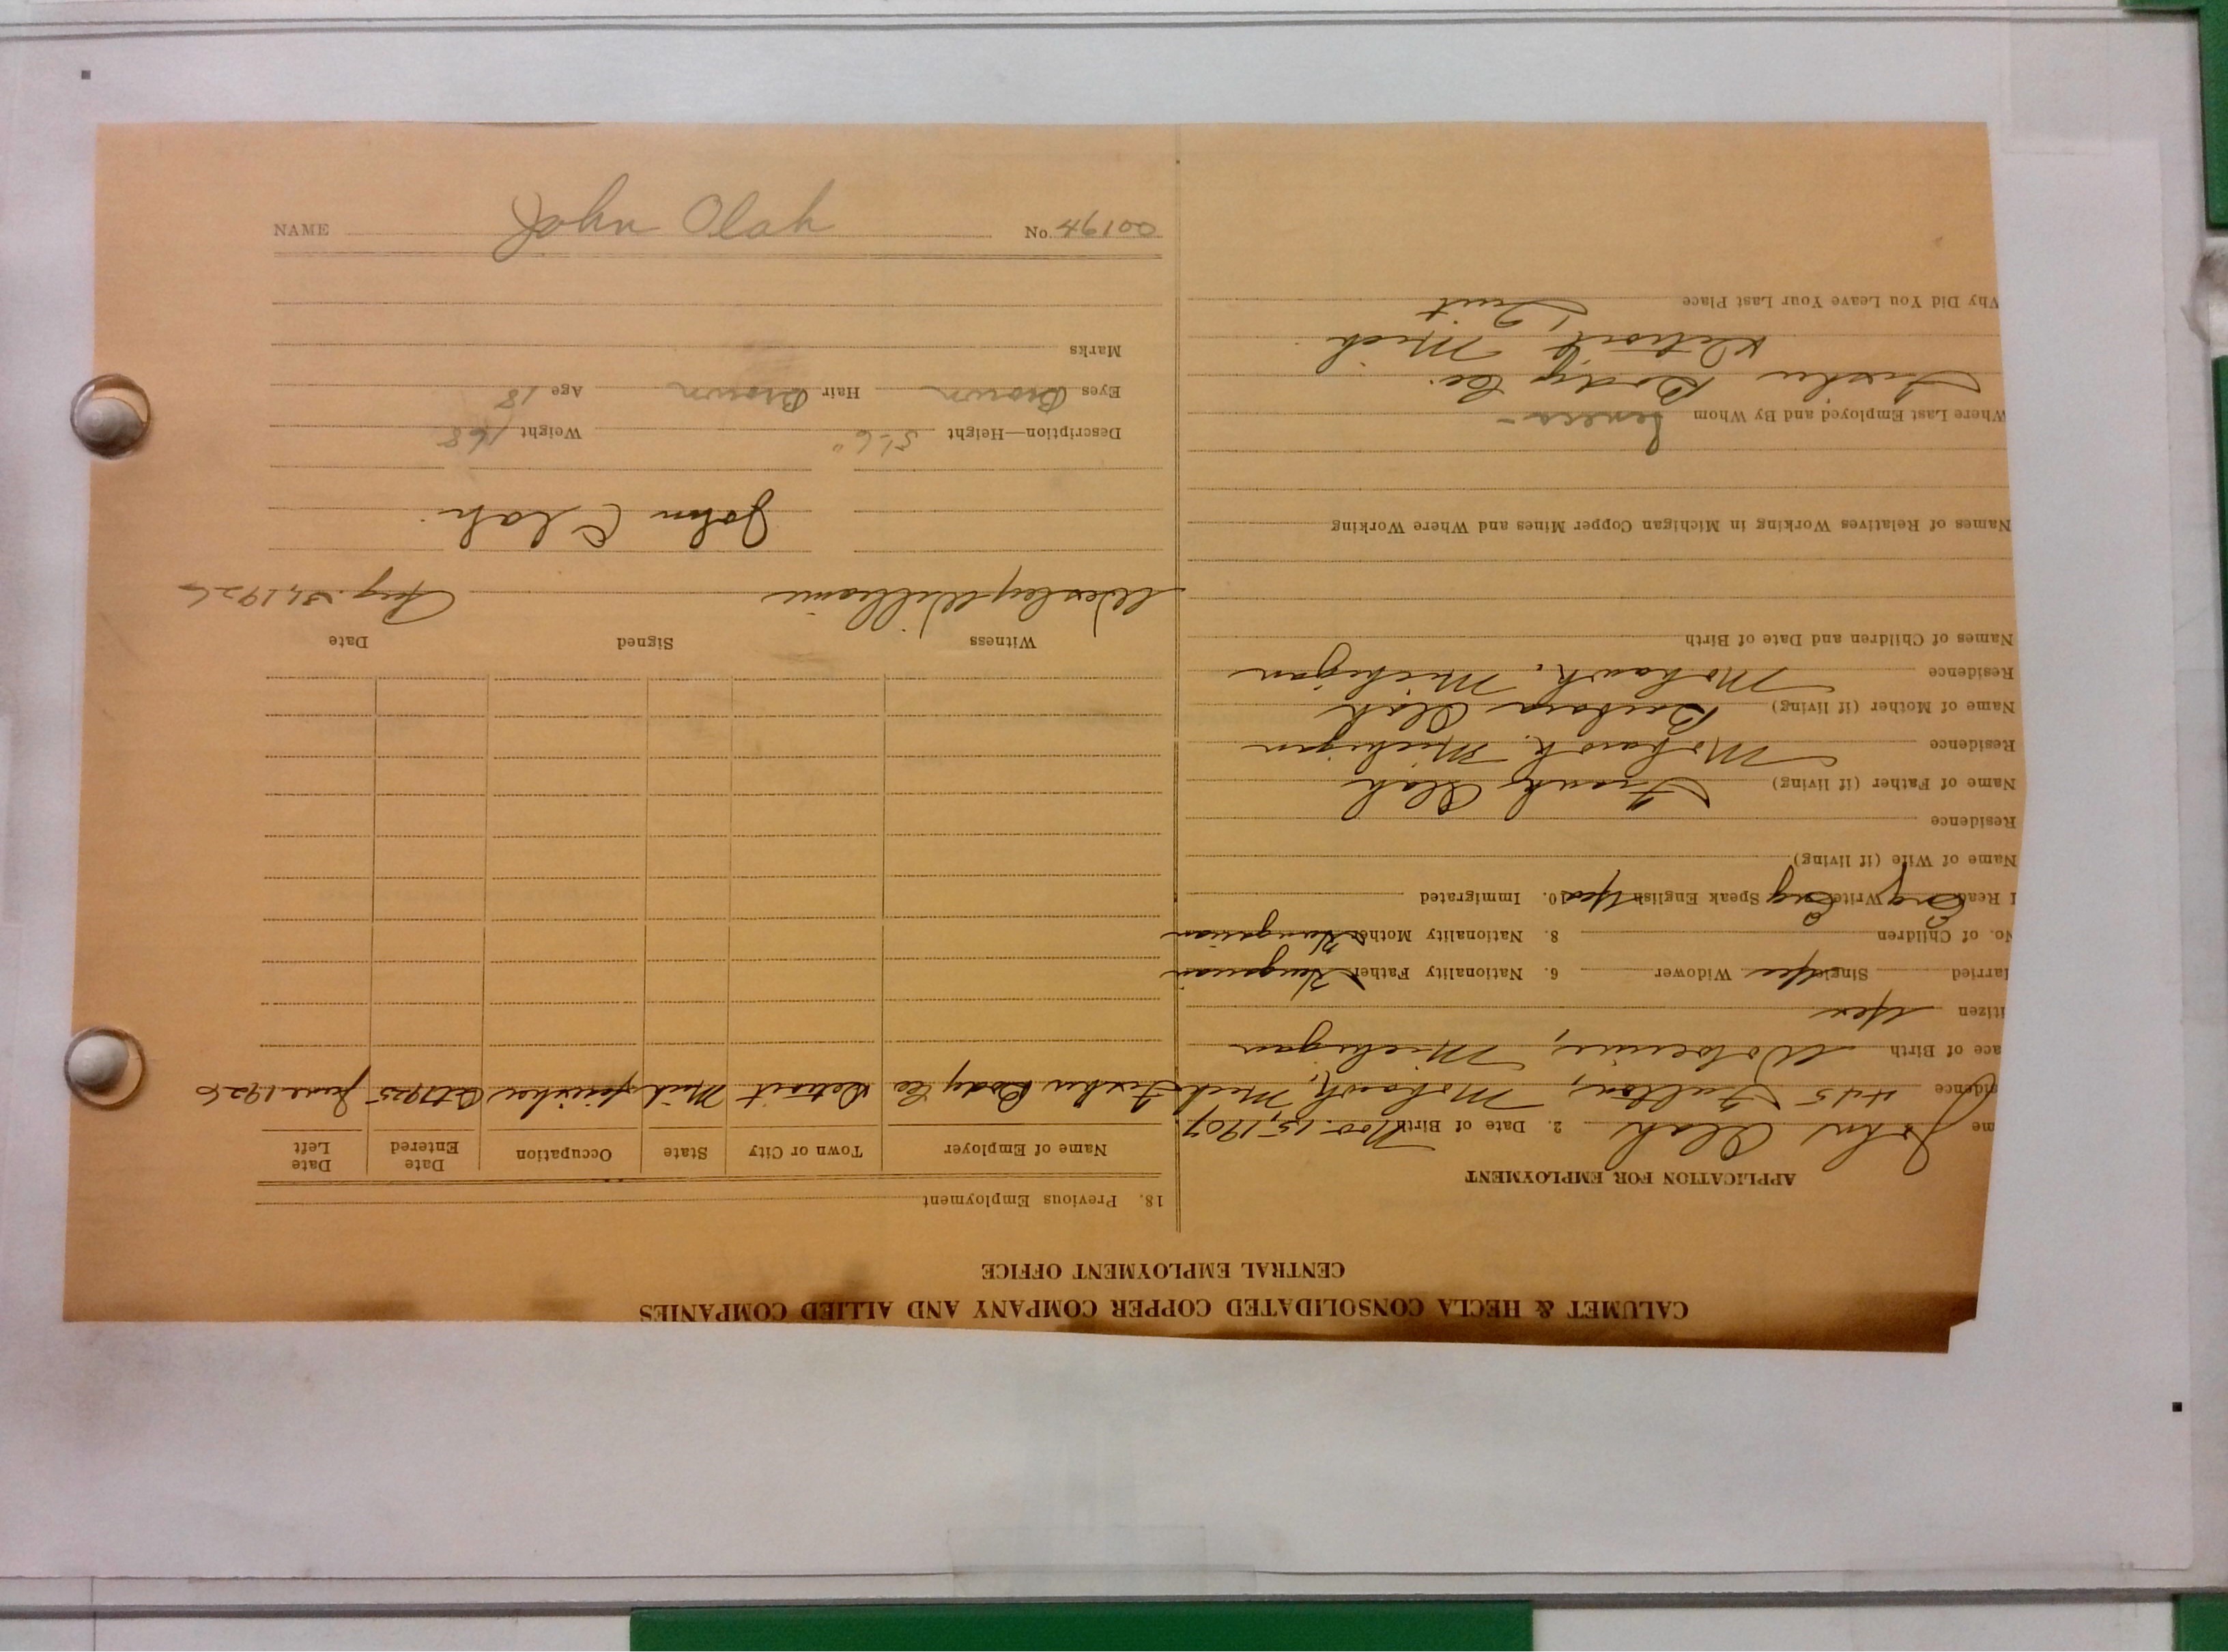 NAME John Olah No. 46100
CALUMET & HECLA CONSOLIDATED COPPER COMPANY AND ALLIED COMPANIES
CENTRAL EMPLOYMENT OFFICE
APPLICATION FOR EMPLOYMENT
me John Olah 2. Date of Birth Nov. 15, 1907
idence 445 Fulton, Mohawk, Mich
ace of Birth Wolverine, Michigan
itizen Yes
arried Single Yes Widower 6. Nationality Father Hungarian
No. of Children 8. Nationality Mother Hungarian
Read Eng Write Eng Speak English Yes 10. Immigrated
Name of Wife (if living)
Residence
Name of Father (if living) Frank Olah
Residence Mohawk, Michigan
Name of Mother (if living) Barbara Olah
Residence Mohawk, Michigan
Names of Children and Date of Birth
Names of Relatives Working in Michigan Copper Mines and Where Working
Where Last Employed and By Whom Seneca -
Fisher Body Co.
Detroit, Mich
Why Did You Leave Your Last Place Quit
18. Previous Employment
Name of Employer Town or City State Occupation Date Entered Date Left
Fisher Body Co Detroit Mich finisher Oct 1925 June 1926
Witness Signed Date
Wesley Williams Aug. 31, 1926
John Olah
Description—Height 5'-6" Weight 168
Eyes Brown Hair Brown Age 18
Marks